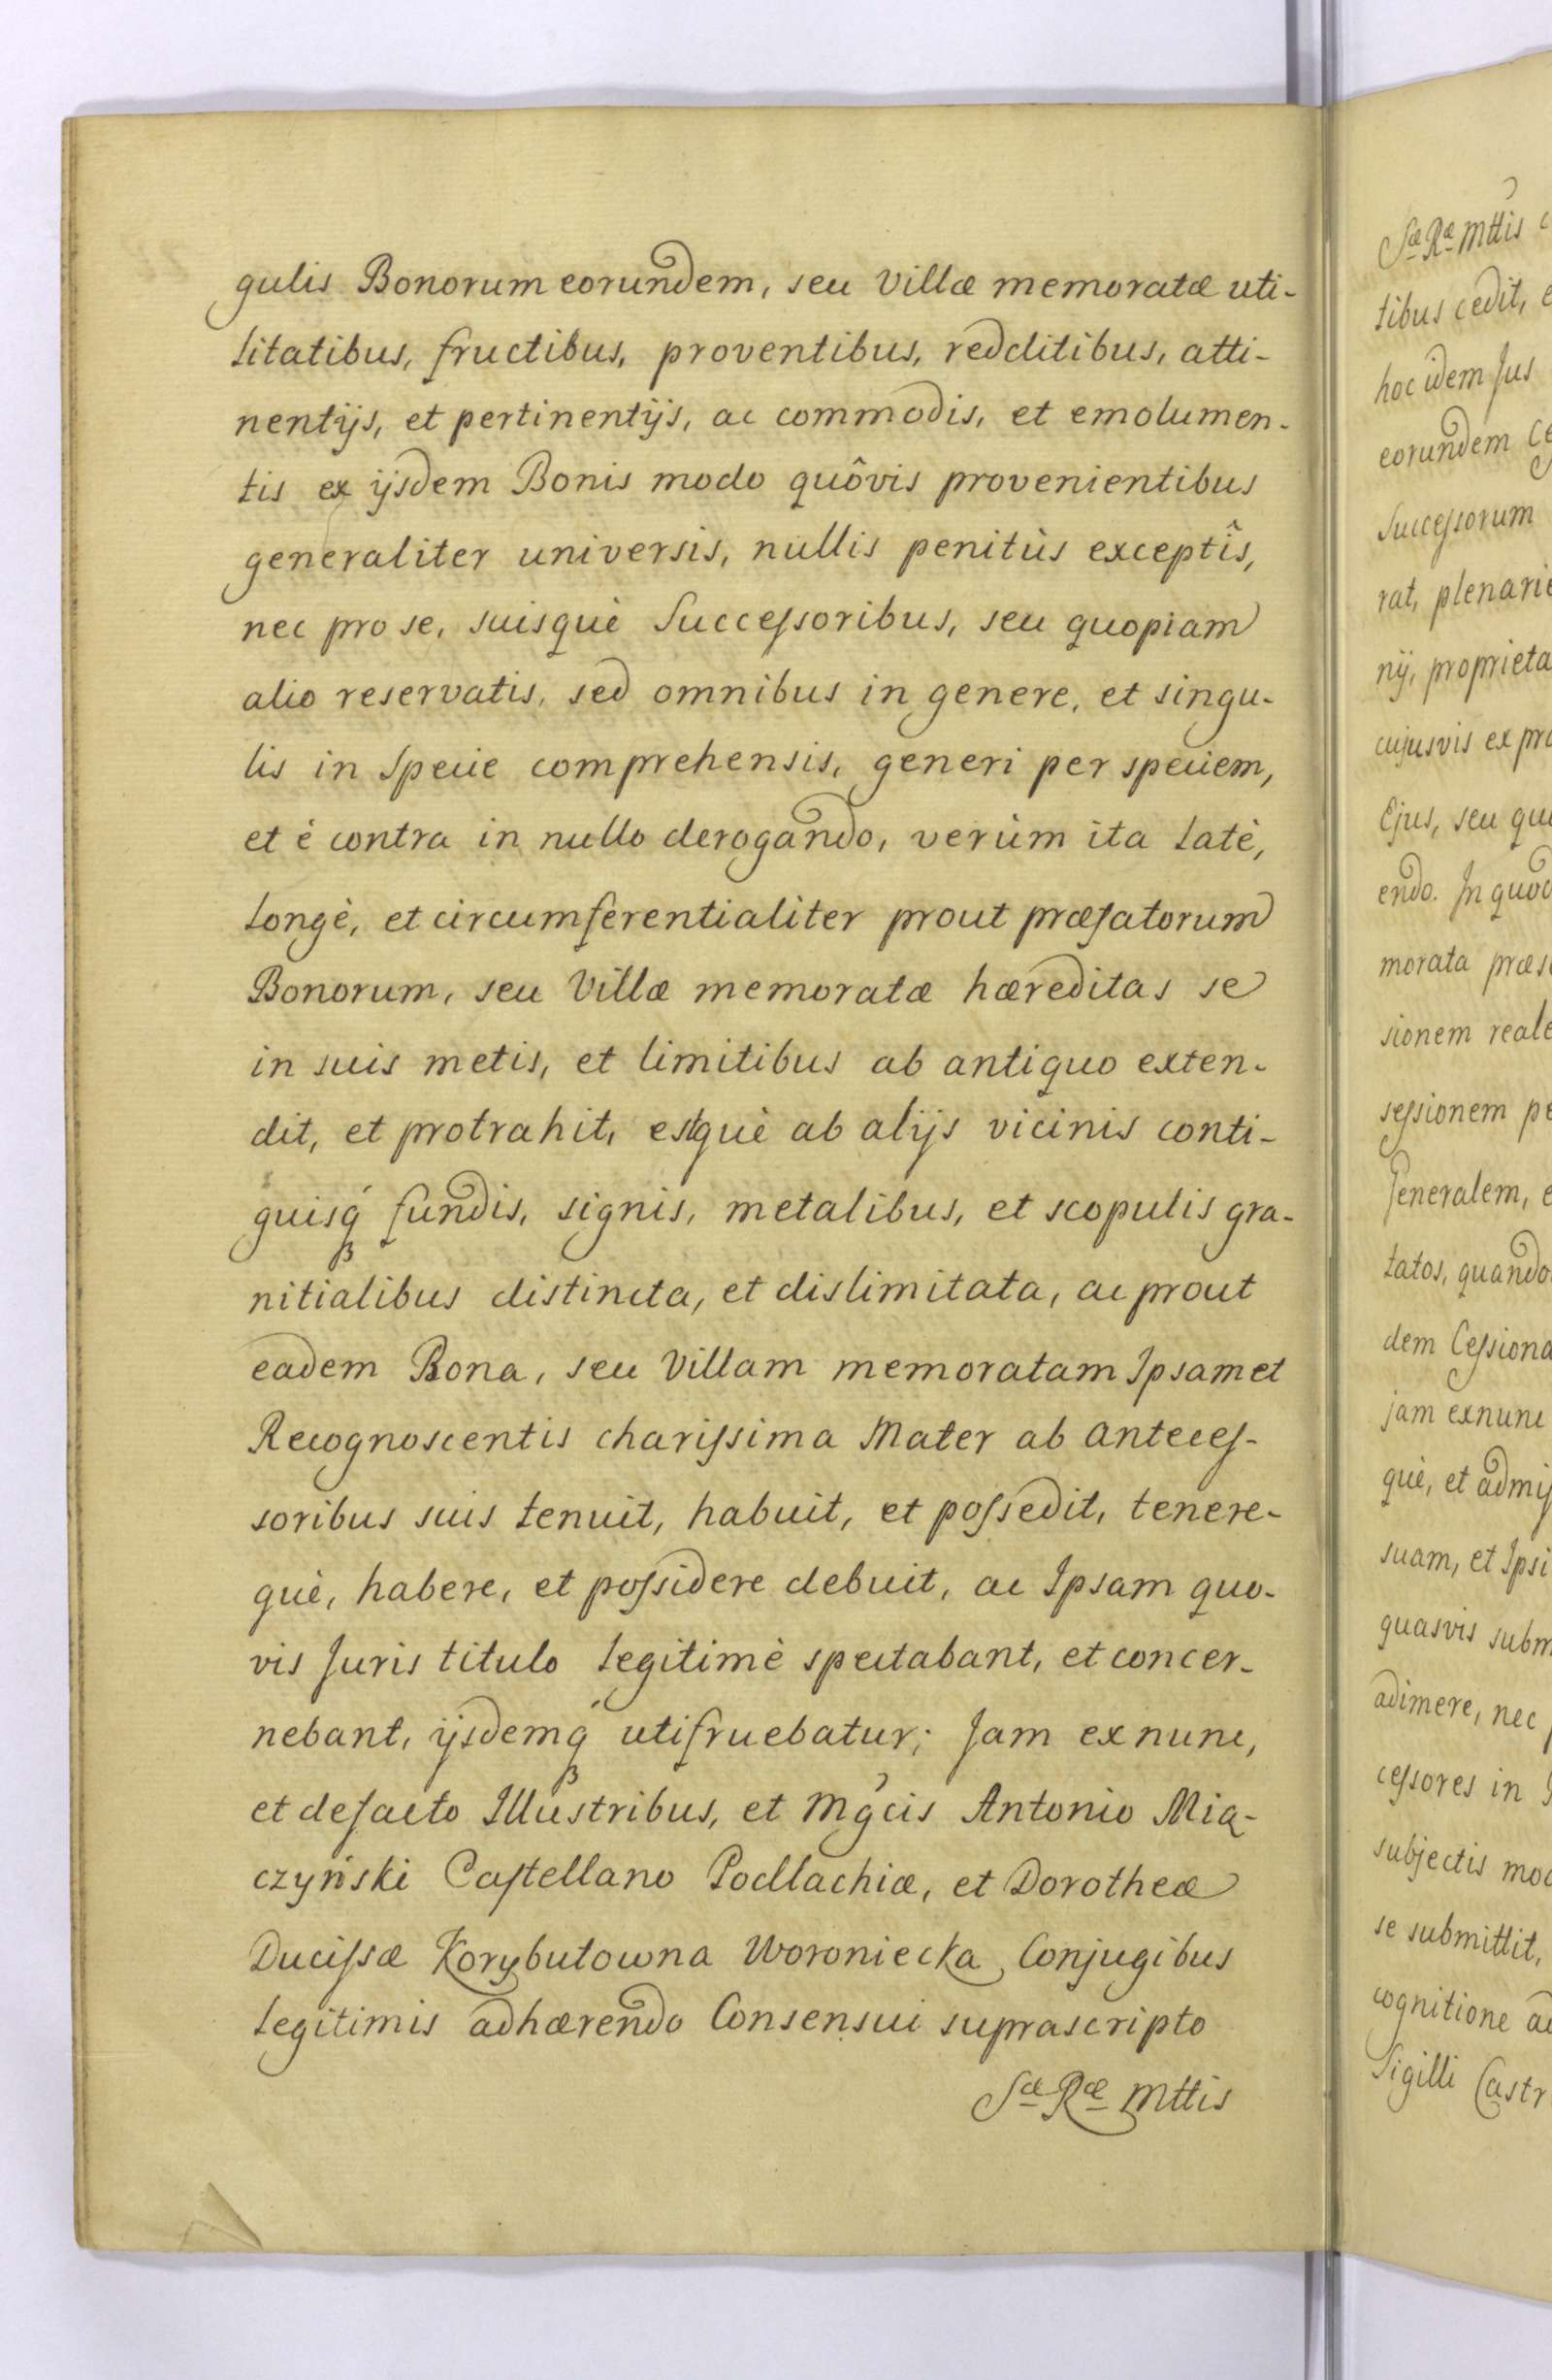 gulis Bonorum eorundem, seu Villæ memoratæ uti-
litatibus, fructibus, proventibus, redditibus, atti-
nentijs, et pertinentijs, ac commodis, et emolumen-
tis ex ijsdem Bonis modo quôvis provenientibus
generaliter universis, nullis penitùs exceptîs,
nec pro se, suisquè Successoribus, seu quopiam
alio reservatis, sed omnibus in genere, et singu-
lis in Specie comprehensis, generi per speciem,
et è contra in nullo derogando, verùm ita latè,
longè, et circumferentialiter prout præfatorum
Bonorum, seu Villæ memoratæ hæreditas se
in suis metis, et limitibus ab antiquo exten-
dit, et protrahit, estquè ab alijs vicinis conti-
guisq́ fundis, signis, metalibus, et scopulis gra-
nitialibus distincta, et dislimitata, ac prout
eadem Bona, seu Villam memoratam Ipsamet
Recognoscentis charissima Mater ab anteces-
soribus suis tenuit, habuit, et possedit, tenere-
què, habere, et possidere debuit, ac Ipsam quo-
vis Juris titulo legitimè spectabant, et concer-
nebant, ijsdemq́ utifruebatur; Jam ex nunc,
et defacto Illustribus, et Mgcis Antonio Mią-
czyński Castellano Podlachiæ, et Dorotheæ
Ducissæ Korybutowna Woroniecka Conjugibus
legitimis adhærendo Consensui suprascripto
Sæ Ræ Mttis
Sæ Ræ Mttis
tibus cedit,
hoc idem Jus
eorundem
Successorum
rat,
nij,
cujusvis ex
Ejus, seu
endo. In
morata
sionem
sessionem
Generalem,
tatos,
dem
jam exnunc
què, et
suam, et
quasvis
adimere, nec
cessores in
subjectis
se submittit,
cognitione
Sigilli